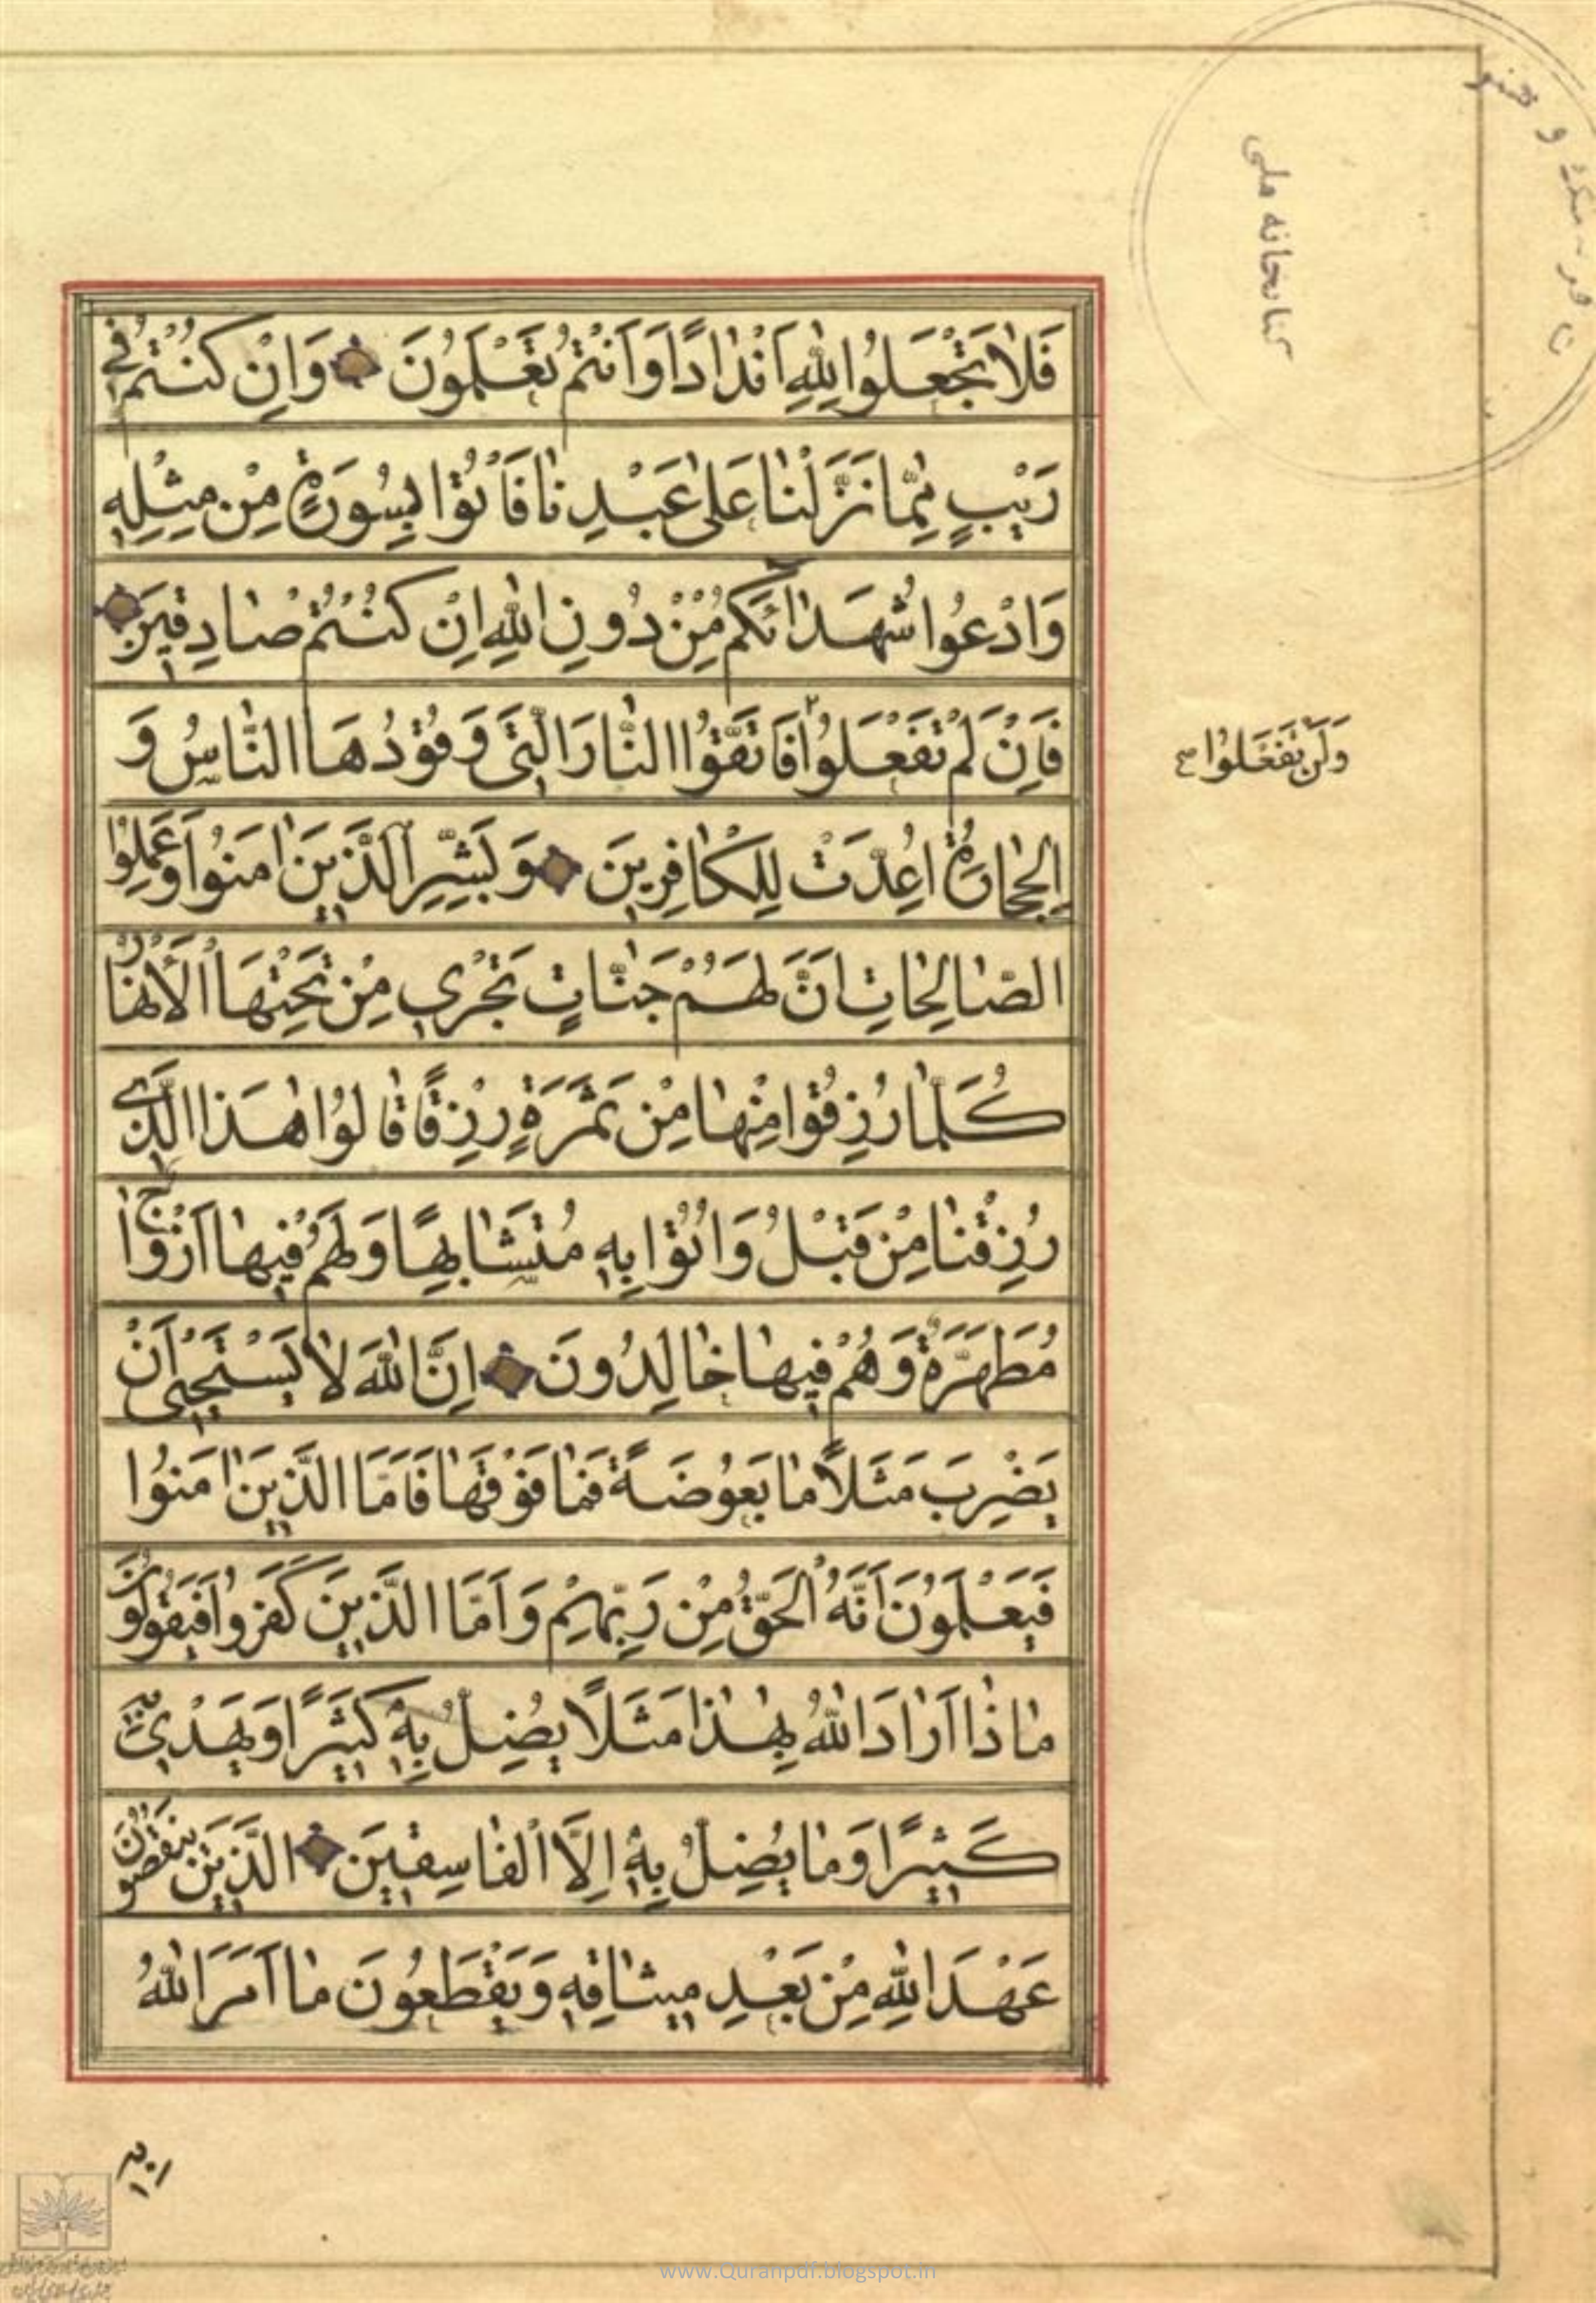 فَلَا تَجْعَلُوا لِلّٰهِ اَنْدَادًا وَاَنْتُمْ تَعْلَمُونَ وَاِنْ كُنْتُمْ فِي
رَيْبٍ مِمَّا نَزَّلْنَا عَلٰى عَبْدِنَا فَأْتُوا بِسُورَةٍ مِنْ مِثْلِهِ
وَادْعُوا شُهَدَائَكُمْ مِنْ دُونِ اللّٰهِ اِنْ كُنْتُمْ صَادِقِينَ
فَاِنْ لَمْ تَفْعَلُوا فَاتَّقُوا النَّارَ الَّتِي وَقُودُهَا النَّاسُ وَ
وَلَنْ تَفْعَلُوا صح
الْحِجَارَةُ اُعِدَّتْ لِلْكَافِرِينَ وَبَشِّرِ الَّذِينَ اٰمَنُوا وَعَمِلُوا
الصَّالِحَاتِ اَنَّ لَهُمْ جَنَّاتٍ تَجْرِي مِنْ تَحْتِهَا الْاَنْهَارُ
كُلَّمَا رُزِقُوا مِنْهَا مِنْ ثَمَرَةٍ رِزْقًا قَالُوا هٰذَا الَّذِي
رُزِقْنَا مِنْ قَبْلُ وَاُتُوا بِهِ مُتَشَابِهًا وَلَهُمْ فِيهَا اَزْوَاجٌ
مُطَهَّرَةٌ وَهُمْ فِيهَا خَالِدُونَ اِنَّ اللّٰهَ لَا يَسْتَحْيِي اَنْ
يَضْرِبَ مَثَلًا مَا بَعُوضَةً فَمَا فَوْقَهَا فَاَمَّا الَّذِينَ اٰمَنُوا
فَيَعْلَمُونَ اَنَّهُ الْحَقُّ مِنْ رَبِّهِمْ وَاَمَّا الَّذِينَ كَفَرُوا فَيَقُولُونَ
مَاذَا اَرَادَ اللّٰهُ بِهٰذَا مَثَلًا يُضِلُّ بِهِ كَثِيرًا وَيَهْدِي بِهِ
كَثِيرًا وَمَا يُضِلُّ بِهِ اِلَّا الْفَاسِقِينَ الَّذِينَ يَنْقُضُونَ
عَهْدَ اللّٰهِ مِنْ بَعْدِ مِيثَاقِهِ وَيَقْطَعُونَ مَا اَمَرَ اللّٰهُ
كتابخانه ملی
www.Quranpdf.blogspot.in